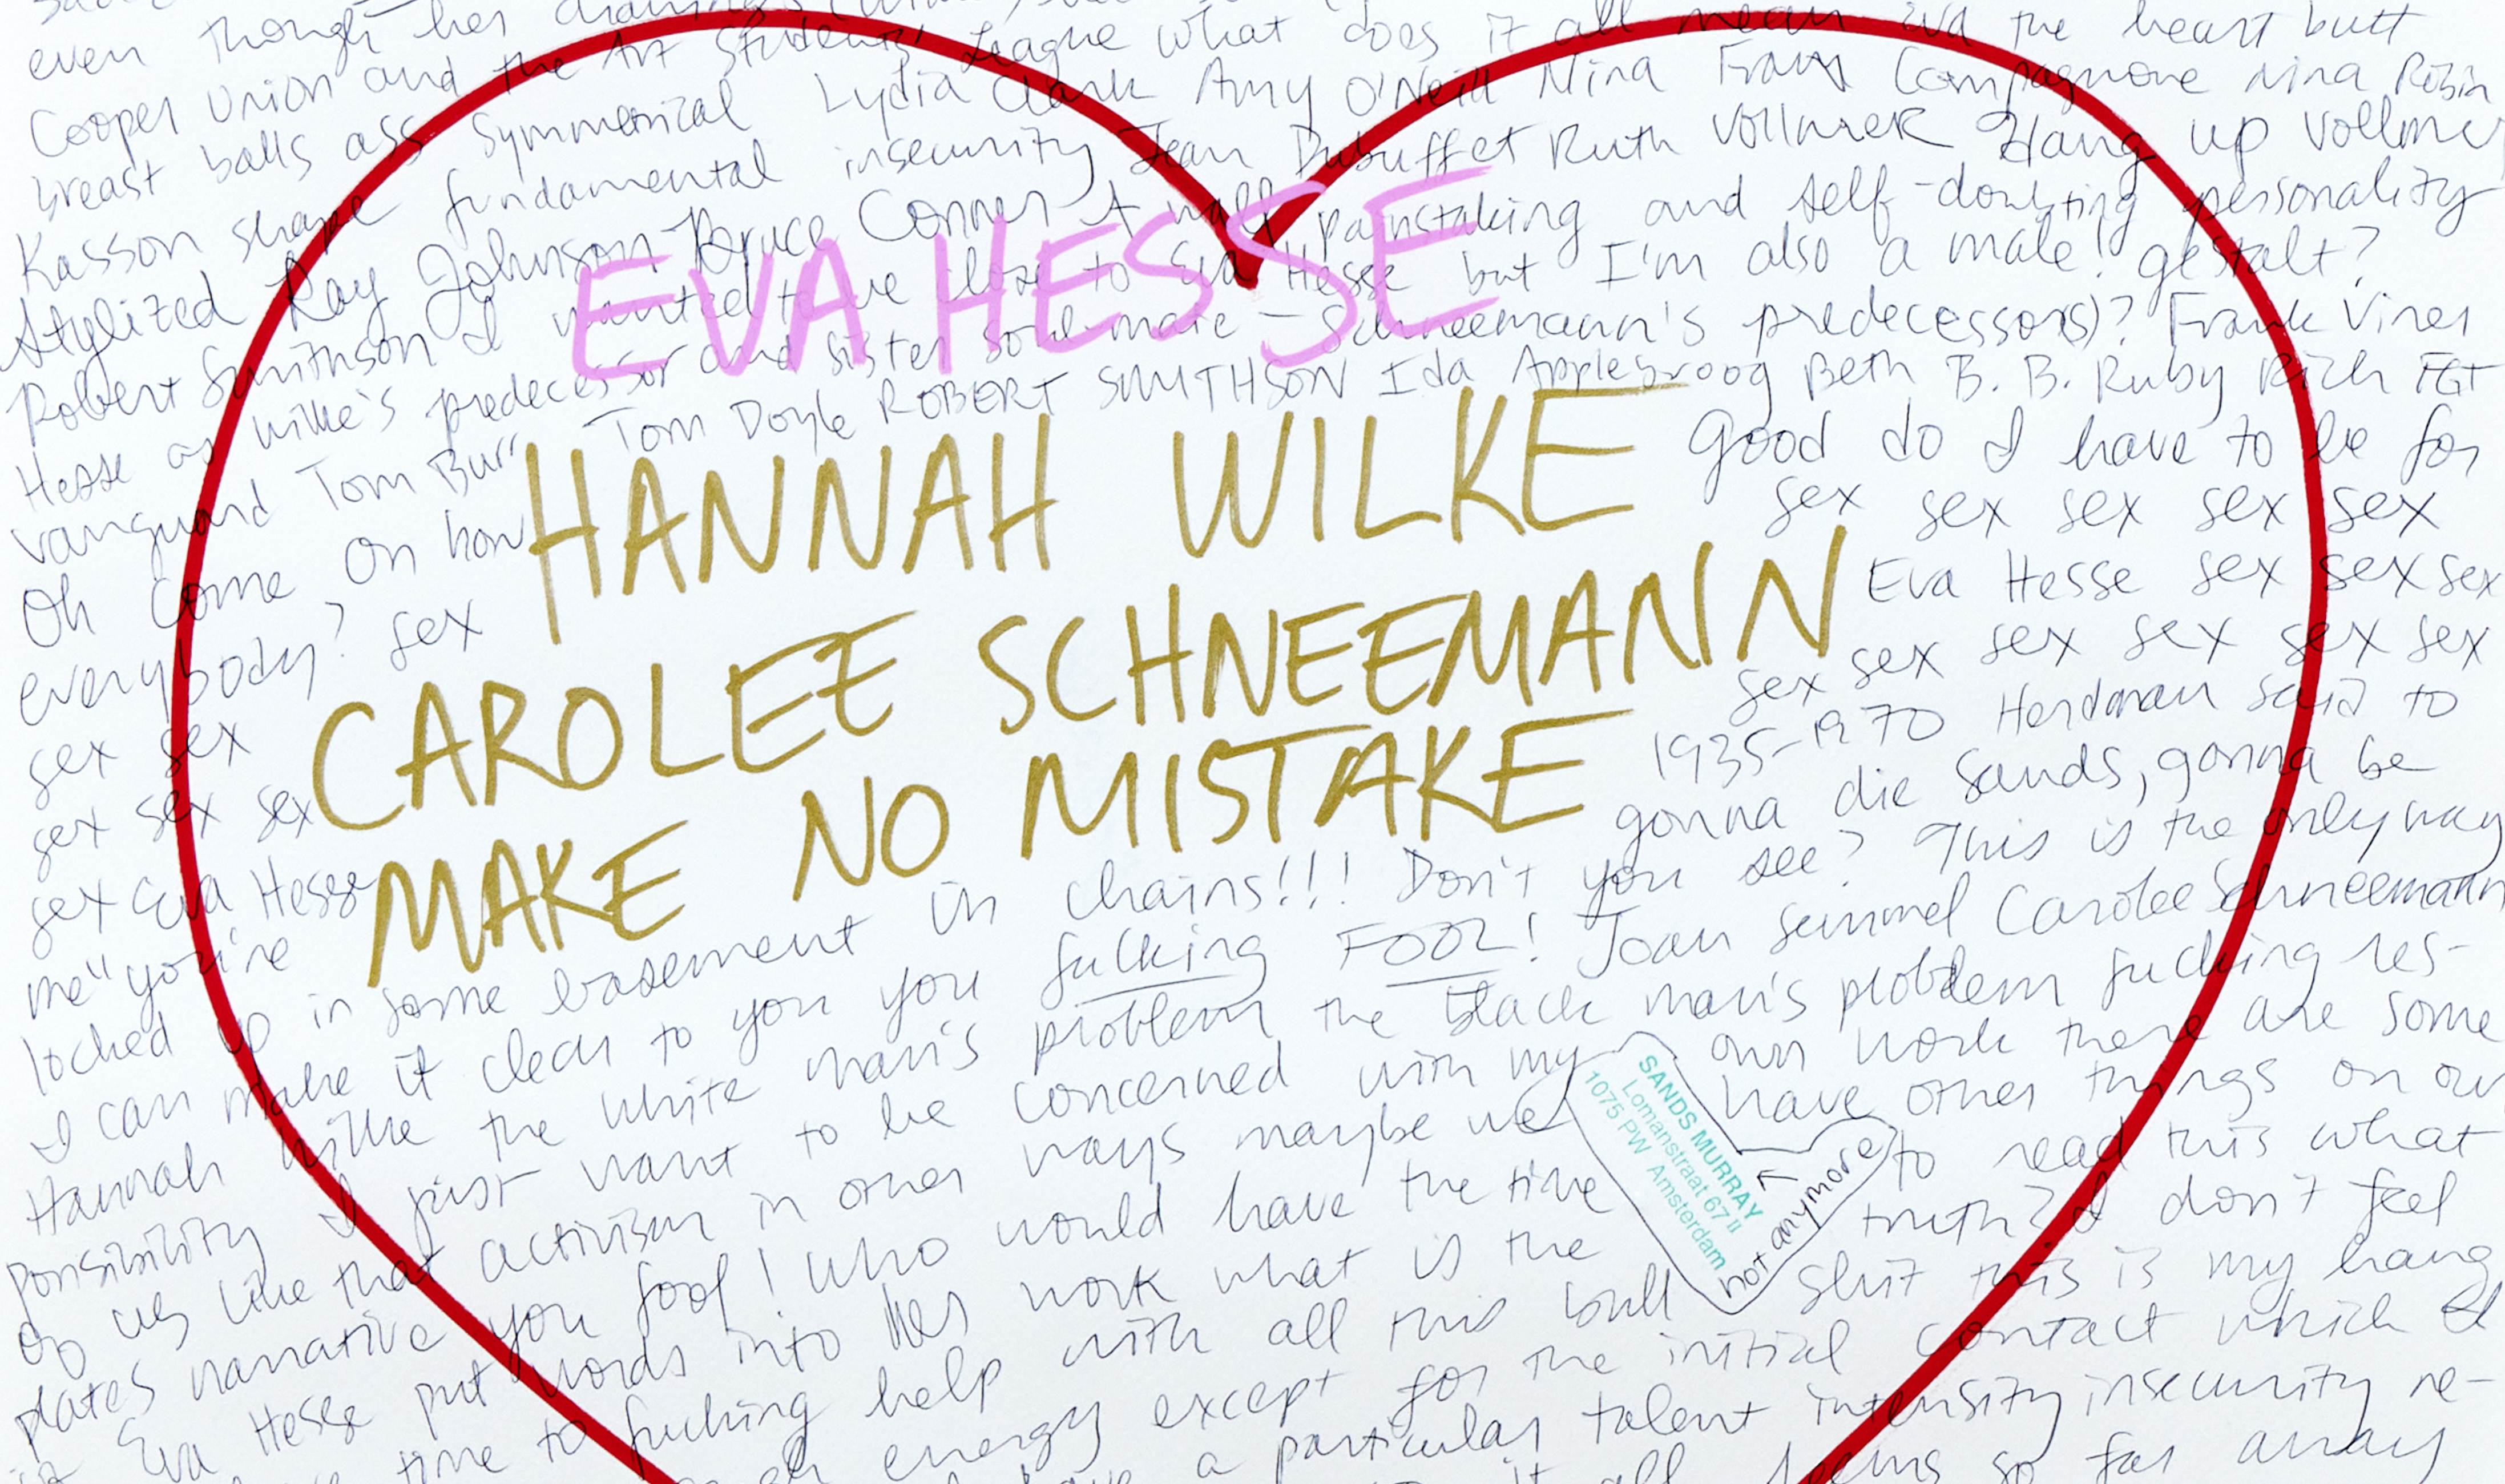 even though her drawings
Cooper Union and the Art Students' League what does it all mean Eva the heart butt
breast balls ass symmetrical Lydia Clark Amy O'Neill Nina Franz Compagnone Nina Robin
Kasson shape fundamental insecurity Jean Dubuffet Ruth Vollmer Hang up Vollmer
Stylized Ray Johnson Bruce Conner A half painstaking and self-doubting personality
Robert Smithson I wanted to be close to Eva Hesse but I'm also a male! gestalt?
EVA HESSE
Hesse as Wilke's predecessor and sister soul-mate – Schneemann's predecessor(s)? Frank Viner
vanguard Tom Burr Tom Doyle ROBERT SMITHSON Ida Applebroog Beth B. B. Ruby Rich FGT
Oh come on how good do I have to be for
HANNAH WILKE
everybody? sex sex sex sex sex sex
sex sex Eva Hesse sex sex sex
CAROLEE SCHNEEMANN
sex sex sex sex sex sex sex sex sex
sex Eva Hesse 1935-1970 Herdman said to
MAKE NO MISTAKE
me "you're gonna die Sands, gonna be
locked up in some basement in chains!!! Don't you see? This is the only way
I can make it clear to you you fucking FOOL! Joan Semmel Carolee Schneemann
Hannah Wilke the white man's problem the black man's problem fucking res-
ponsibility I just want to be concerned with my own work there are some
of us like that activism in other ways maybe we have other things on our
plates narrative you fool! Who would have the time to read this what
SANDS MURRAY
Lomanstraat 67 II
1075 PW Amsterdam
not anymore
if Eva Hesse put words into her work what is the truth? I don't feel
time to fucking help with all this bull shit this is my hang
energy except for the initial contact which I
a particular talent intensity insecurity re-
it all seems so far away